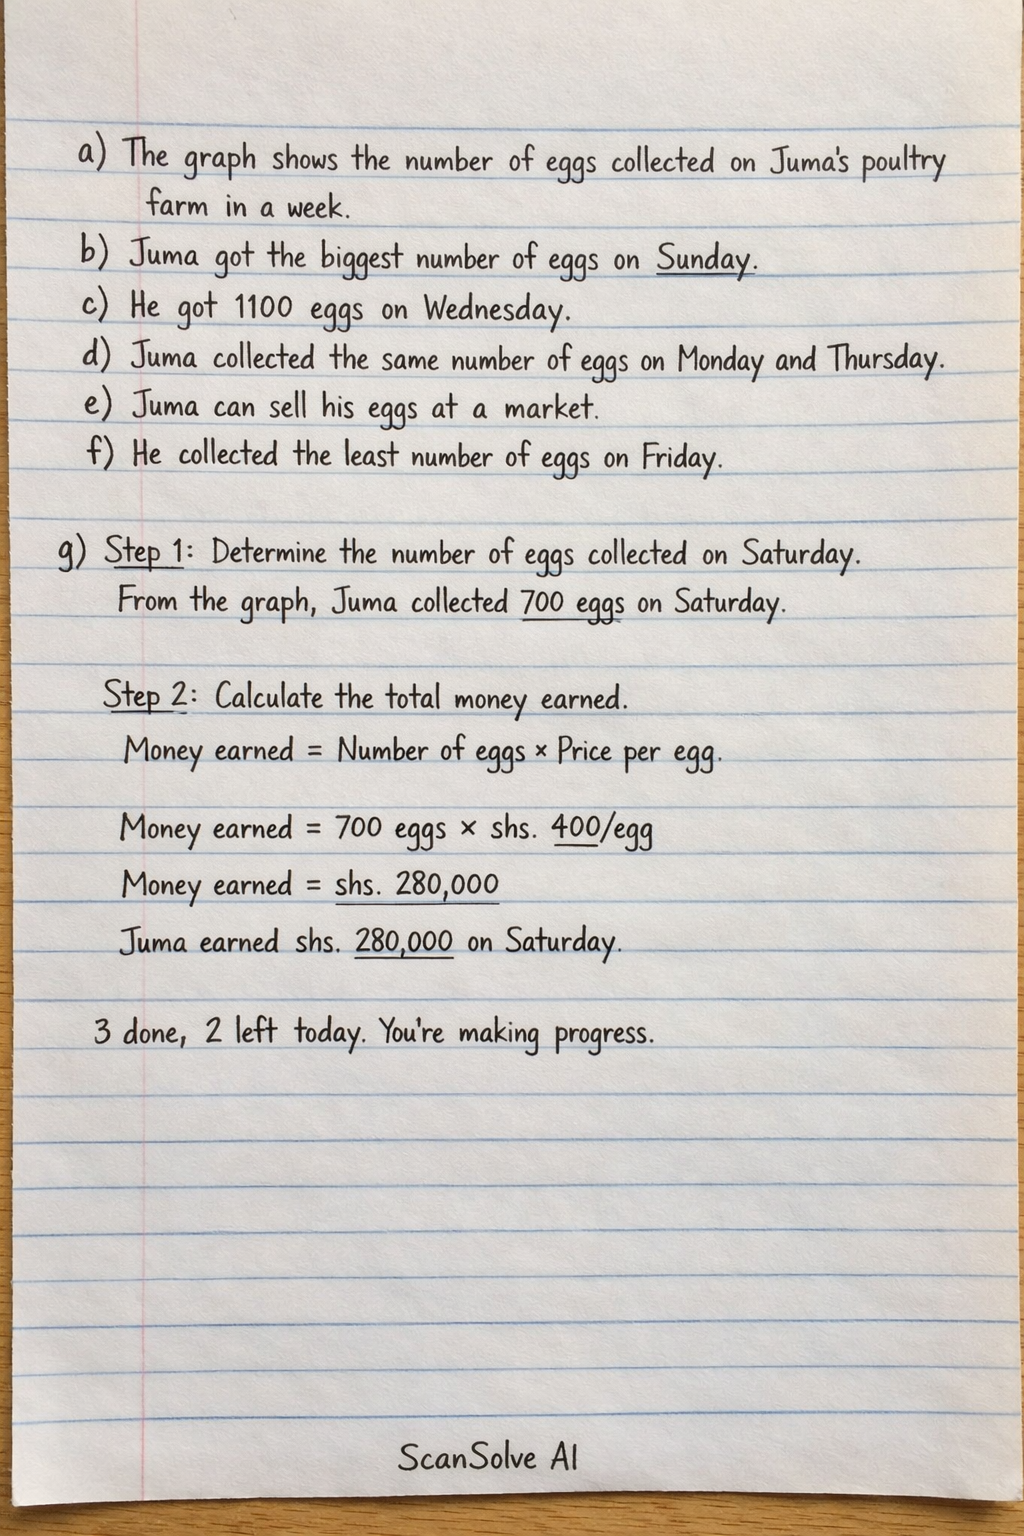 a) The graph shows the number of eggs collected on Juma's poultry
farm in a week.
b) Juma got the biggest number of eggs on Sunday.
c) He got 1100 eggs on Wednesday.
d) Juma collected the same number of eggs on Monday and Thursday.
e) Juma can sell his eggs at a market.
f) He collected the least number of eggs on Friday.
g) Step 1: Determine the number of eggs collected on Saturday.
From the graph, Juma collected 700 eggs on Saturday.
Step 2: Calculate the total money earned.
Money earned = Number of eggs × Price per egg.
Money earned = 700 eggs × shs. 400/egg
Money earned = shs. 280,000
Juma earned shs. 280,000 on Saturday.
3 done, 2 left today. You're making progress.
ScanSolve AI